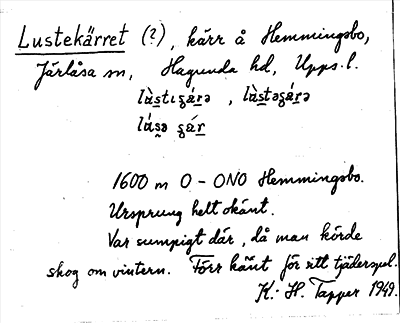 Lustekärret (?), kärr å Hemmingsbo,
Järlåsa sn, Hagunda hd, Upps. l.
lùstɩʂárə, lùstəʂárə
lúsə ʂár
1600 m O - ONO Hemmingsbo.
Ursprung helt okänt.
Var sumpigt där, då man körde
skog om vintern. Förr känt för sitt tjäderspel.
K.-H. Tapper 1949.